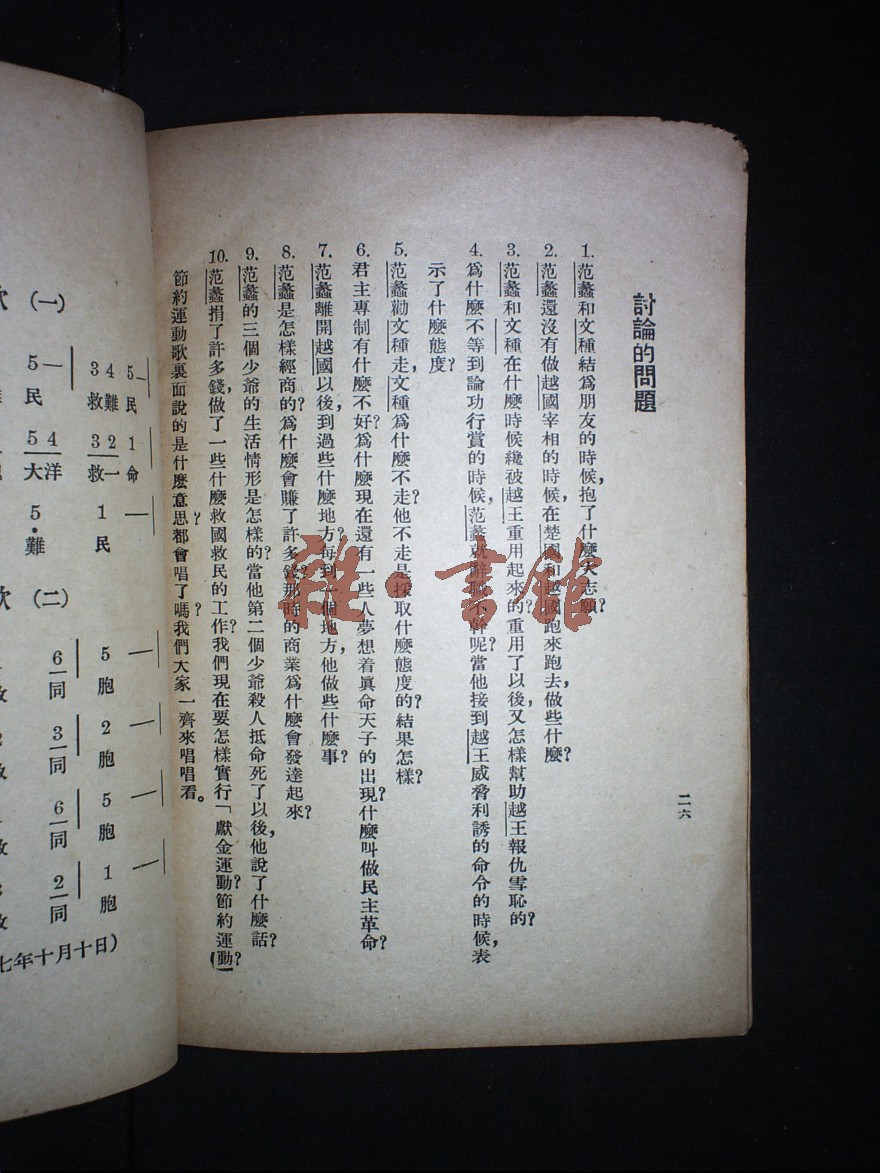 討論的問題
1. 范蠡和文種結爲朋友的時候，抱了什麼大志願？
2. 范蠡還沒有做越國宰相的時候，在楚國和越國跑來跑去，做些什麼？
3. 范蠡和文種在什麼時候纔被越王重用起來的？重用了以後，又怎樣幫助越王報仇雪恥的？
4. 爲什麼不等到論功行賞的時候，范蠡就辭職不幹呢？當他接到越王威脅利誘的命令的時候，表
示了什麼態度？
5. 范蠡勸文種走，文種爲什麼不走？他不走是採取什麼態度的？結果怎樣？
6. 君主專制有什麼不好？爲什麼現在還有一些人夢想着眞命天子的出現？什麼叫做民主革命？
7. 范蠡離開越國以後，到過些什麼地方？每到一個地方，他做些什麼事？
8. 范蠡是怎樣經商的？爲什麼會賺了許多錢？那時的商業爲什麼會發達起來？
9. 范蠡的三個少爺的生活情形是怎樣的？當他第二個少爺殺人抵命死了以後，他說了什麼話？
10. 范蠡捐了許多錢，做了一些什麼救國救民的工作？我們現在要怎樣實行「獻金運動？節約運動？」
節約運動歌裏面說的是什麼意思？都會唱了嗎？我們大家一齊來唱唱看。
二六
雜·書館
（一）
5— 34 5—
民 救難 民
54 32 1
大洋 救一 命
5· 1 —
難 民
（二）
6 5 —
同 胞
3 2 —
同 胞
6 5 —
同 胞
2 1 —
同 胞
七年十月十日）